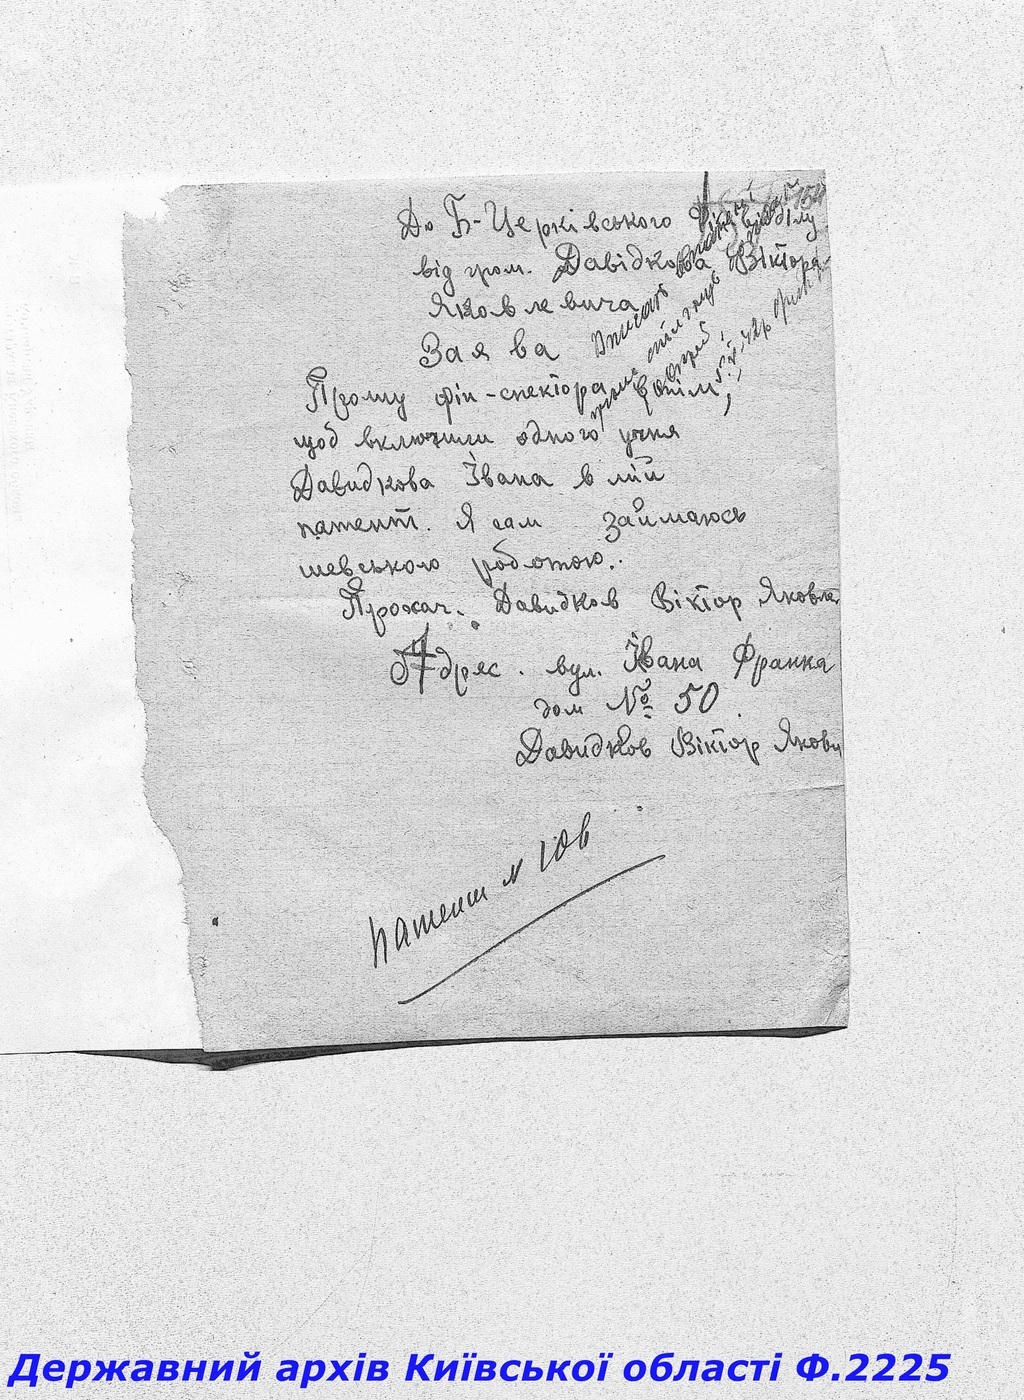 До Б-Церківського Фінвідділу
від гром. Давідкова Віктора
Яковлевича
Заява
Прошу фін-спектора
щоб включили одного учня
Давидкова Івана в мій
патент. Я сам займаюсь
шевською роботою.
Прохач. Давидков Віктор Яковле
Адряс. вул. Івана Франка
дом № 50
Давидков Віктор Якови
патент N
154
Державний архів Київської області Ф.2225